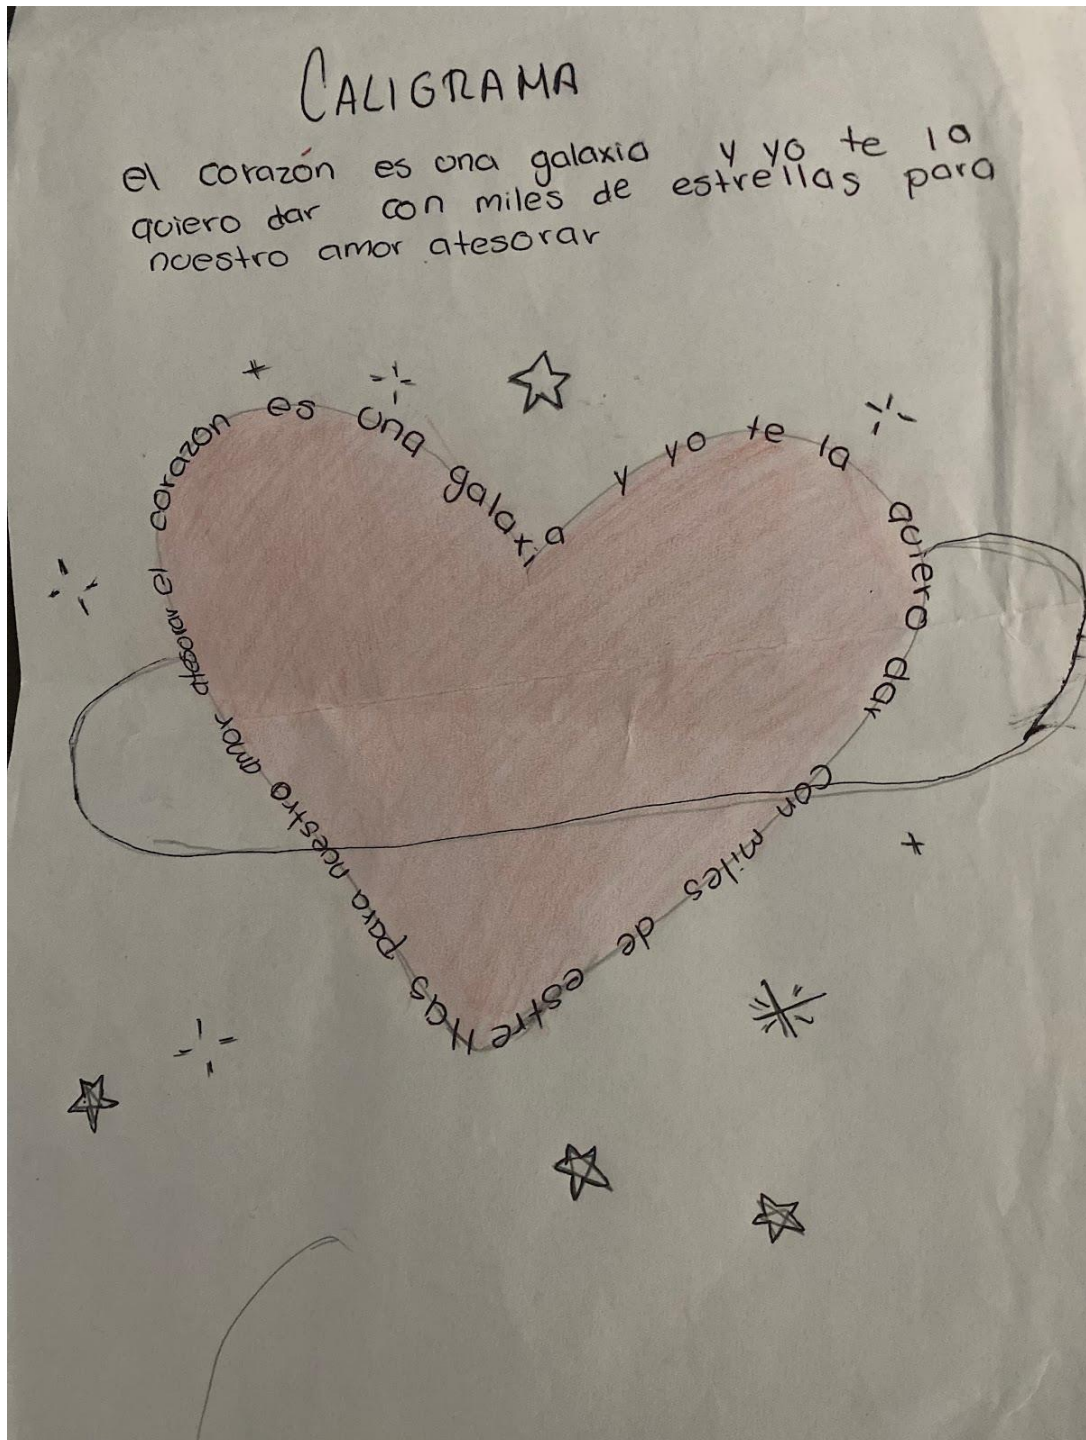 CALIGRAMA
el corazón es una galaxia y yo te la
quiero dar con miles de estrellas para
nuestro amor atesorar
el corazon es una galaxia y yo te la quiero dar con miles de estrellas para nuestro amor atesorar